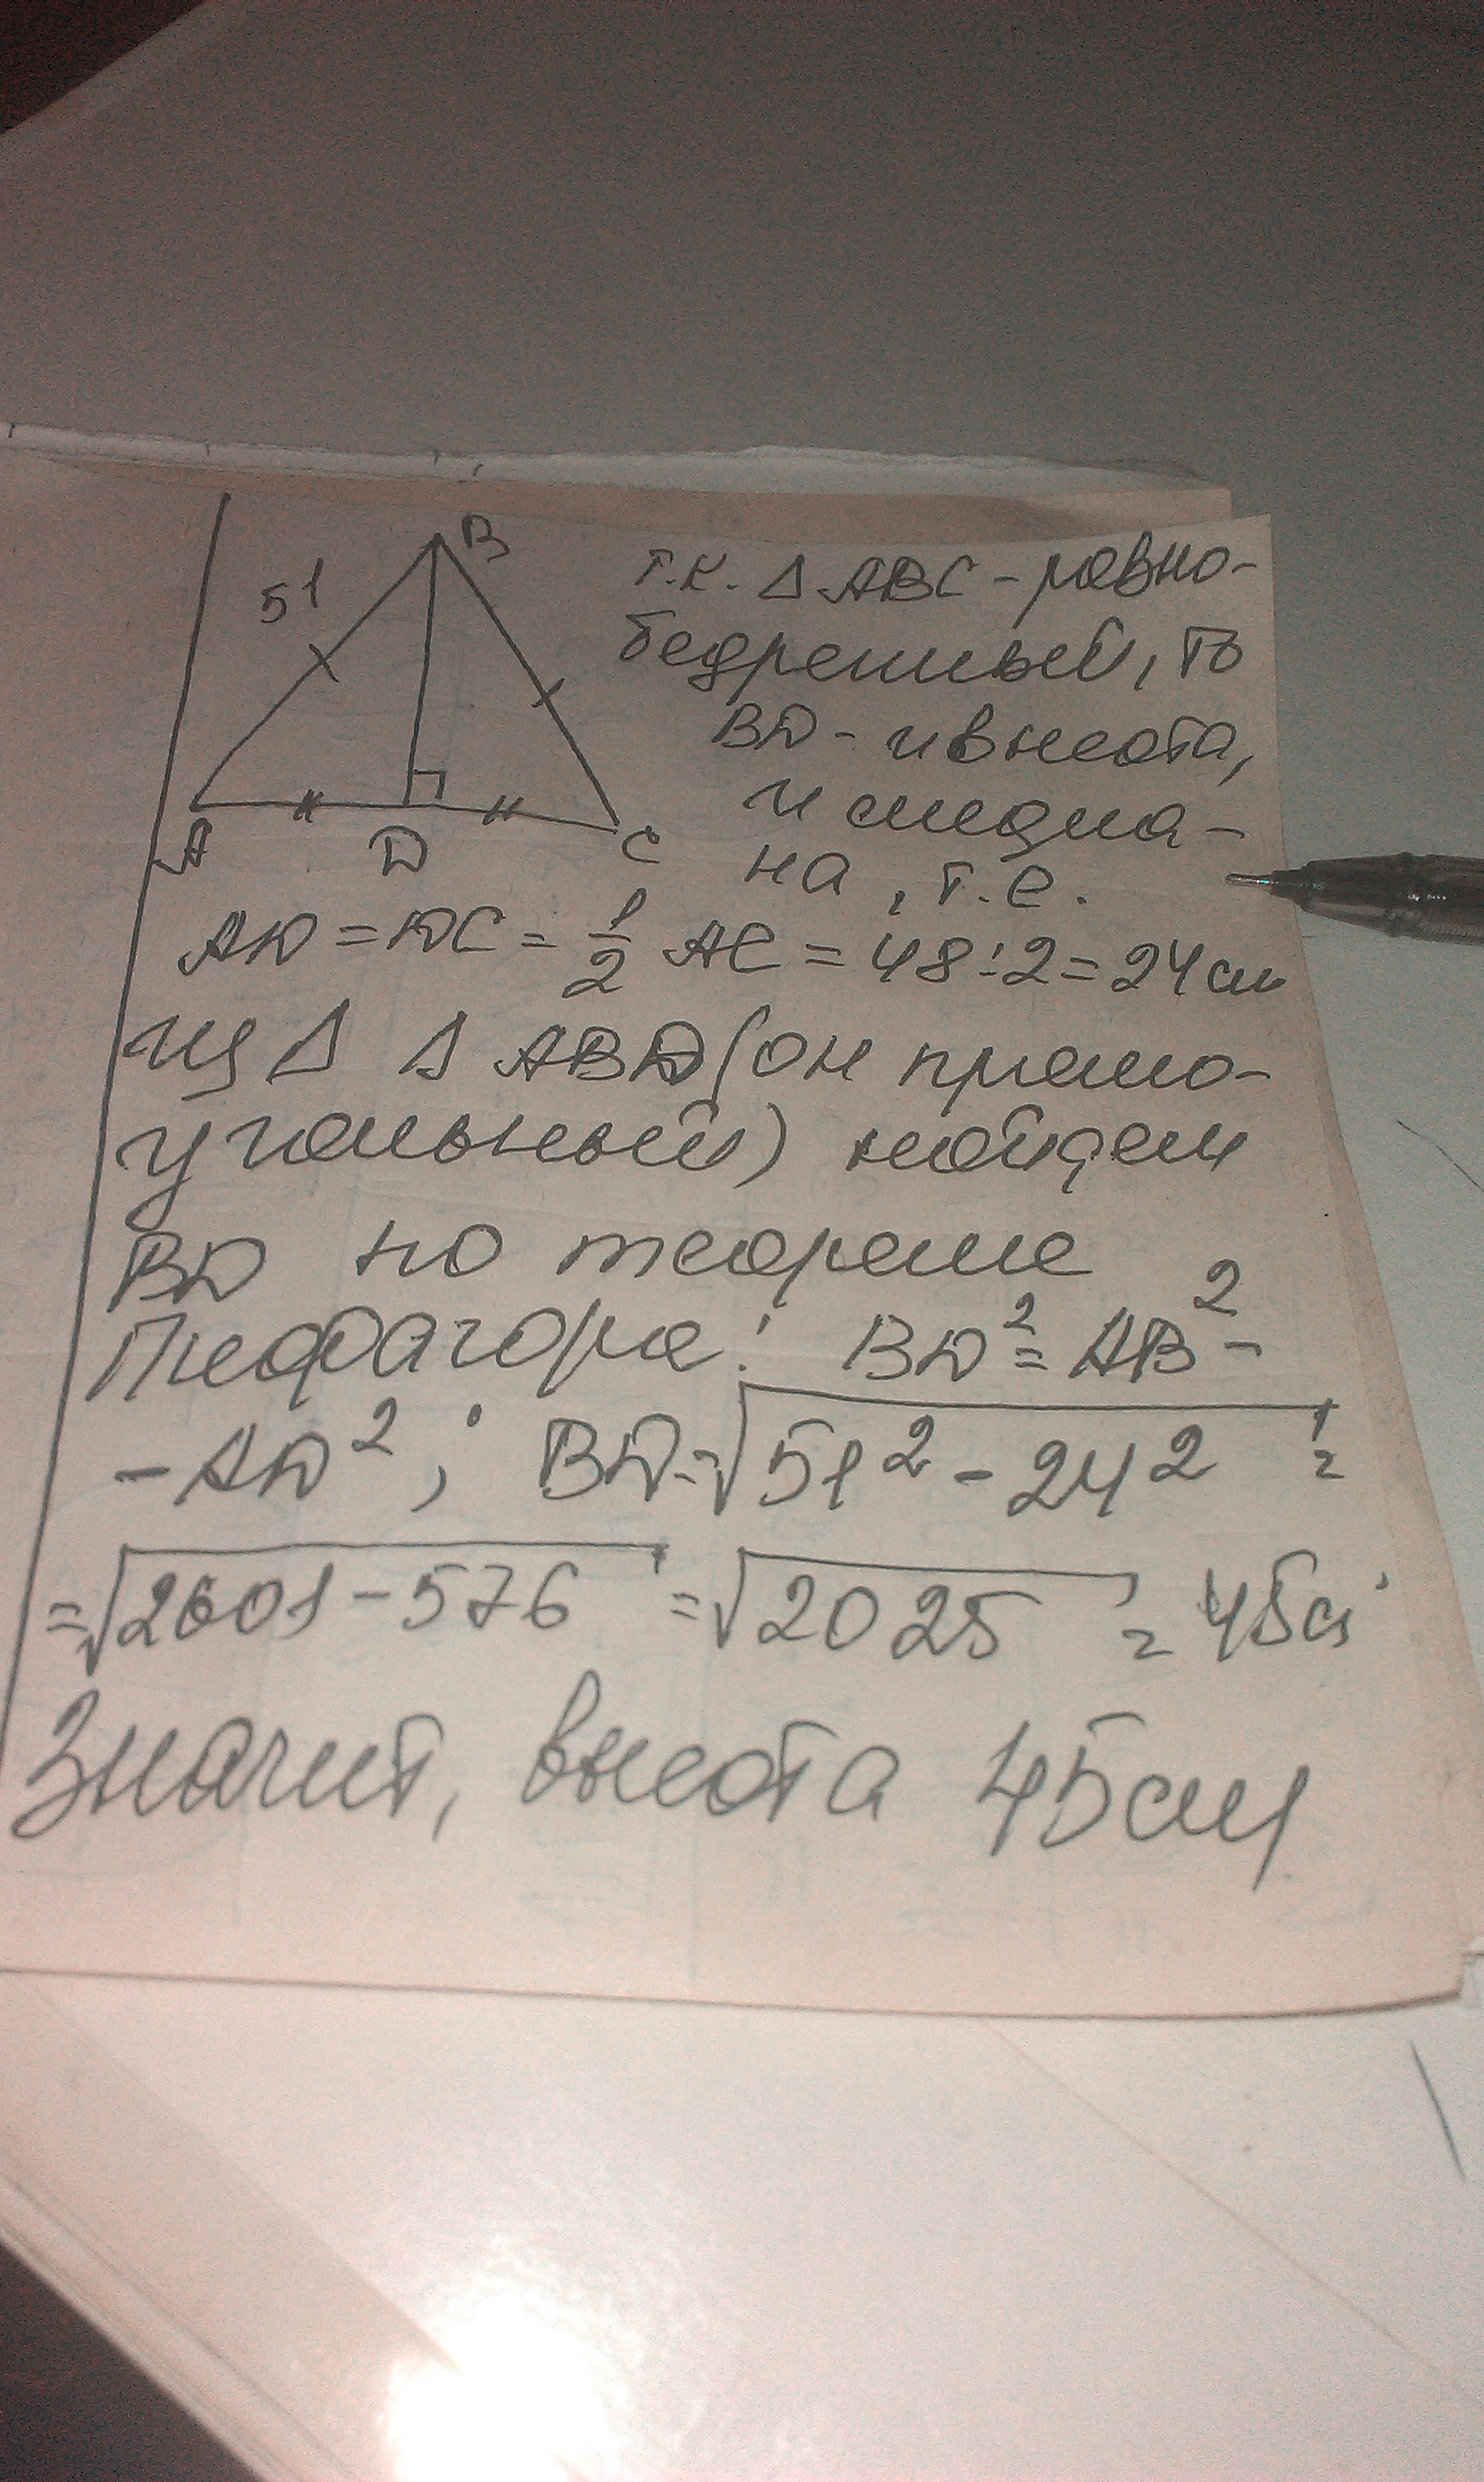 51
B
A
D
C
т.к. Δ ABC - равно-
бедренный, то
BD - и высота,
и медиа-
на, т.е.
AD = DC = 1/2 AC = 48 : 2 = 24 см
из Δ Δ ABD (он прямо-
угольный) найдем
BD по теореме
Пифагора: BD² = AB² -
- AD²; BD = √51² - 24² =
= √2601 - 576 = √2025 = 45 см
Значит, высота 45 см